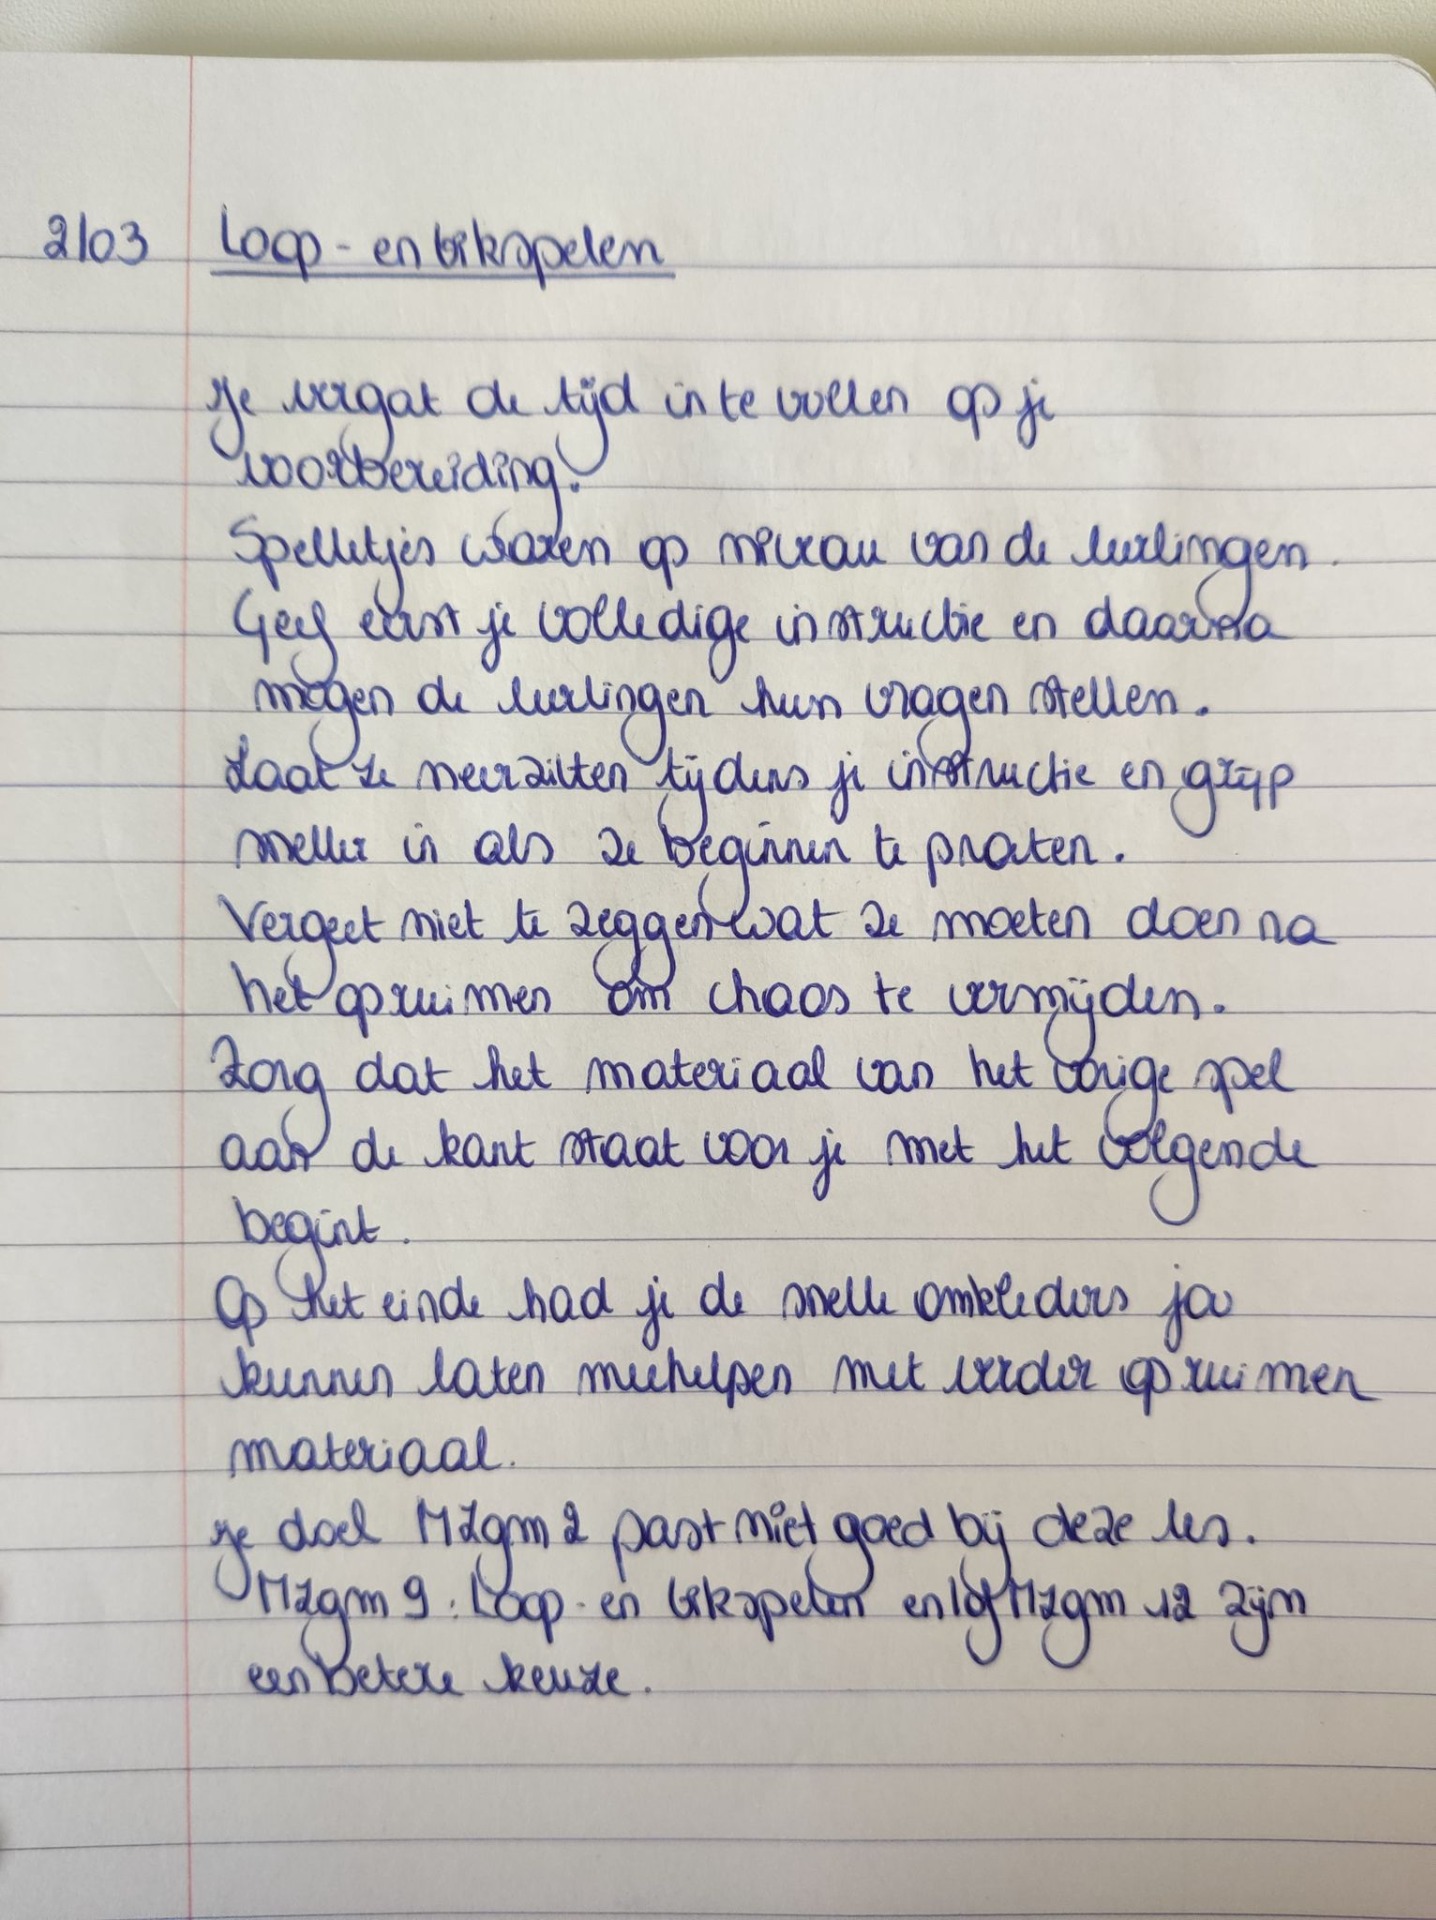 2/03 Loop- en tikspelen
Je vergat de tijd in te vullen op je
voorbereiding.
Spelletjes waren op niveau van de leerlingen.
Geef eerst je volledige instructie en daarna
mogen de leerlingen hun vragen stellen.
Laat ze neerzitten tijdens je instructie en grijp
sneller in als ze beginnen te praten.
Vergeet niet te zeggen wat ze moeten doen na
het opruimen om chaos te vermijden.
Zorg dat het materiaal van het vorige spel
aan de kant staat voor je met het volgende
begint.
Op het einde had je de snelle omkleders jou
kunnen laten meehelpen met verder opruimen
materiaal.
Je doel MZgm 2 past niet goed bij deze les.
MZgm 9: Loop- en tikspelen en/of MZgm 12 zijn
een betere keuze.